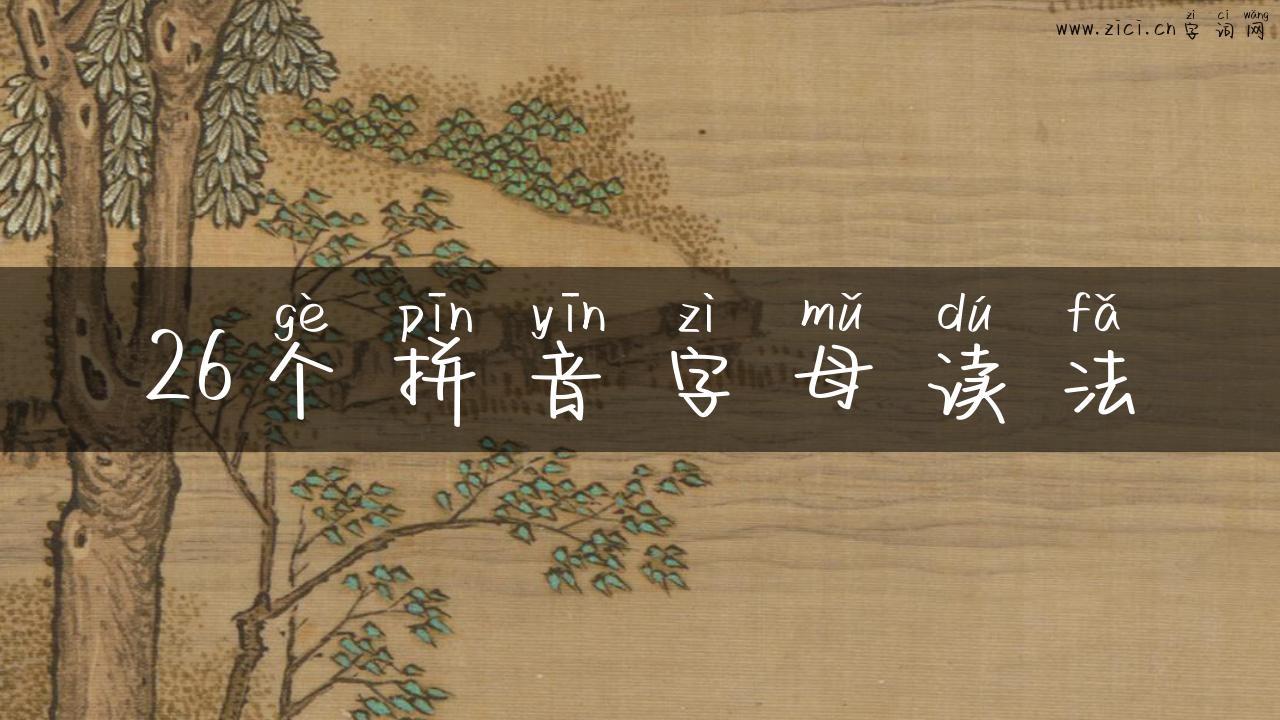 zì cí wǎng
www.zici.cn字词网
gè pīn yīn zì mǔ dú fǎ
26个拼音字母读法